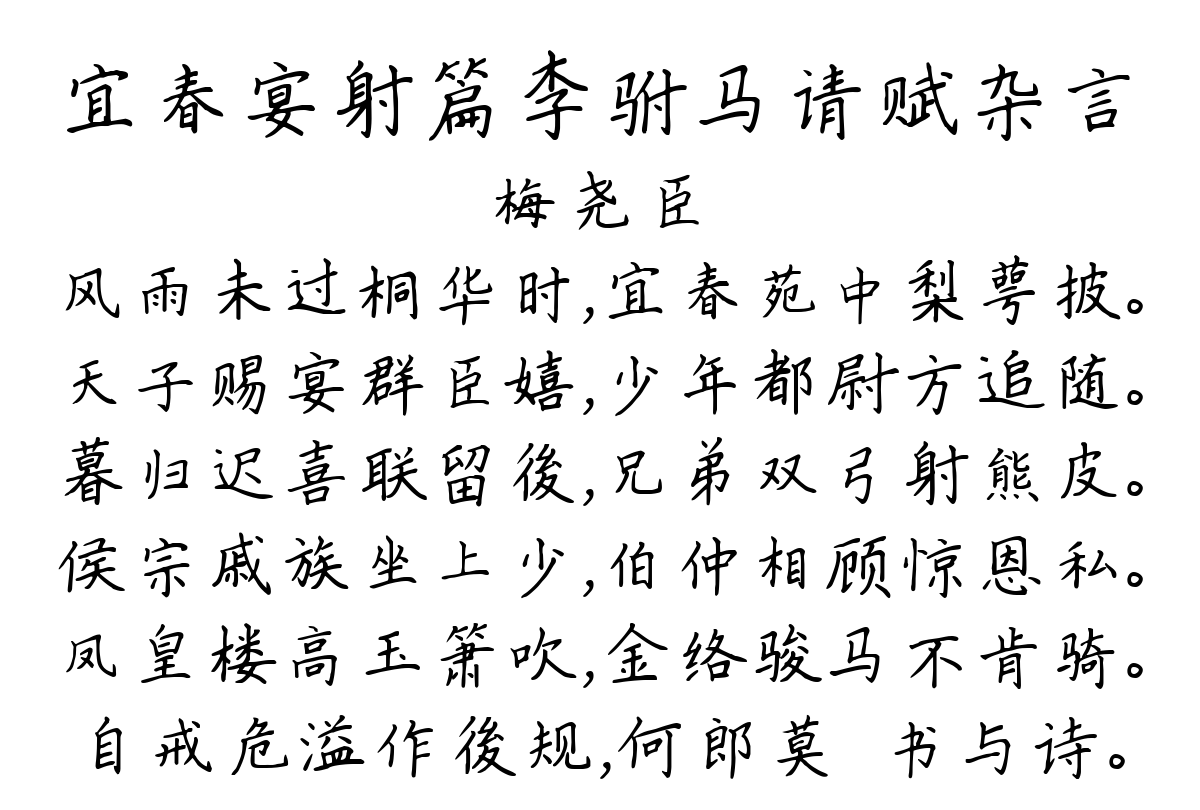 宜春宴射篇李驸马请赋杂言
梅尧臣
风雨未过桐华时,宜春苑中梨萼披。
天子赐宴群臣嬉,少年都尉方追随。
暮归迟喜联留後,兄弟双弓射熊皮。
侯宗戚族坐上少,伯仲相顾惊恩私。
凤皇楼高玉箫吹,金络骏马不肯骑。
自戒危溢作後规,何郎莫 书与诗。